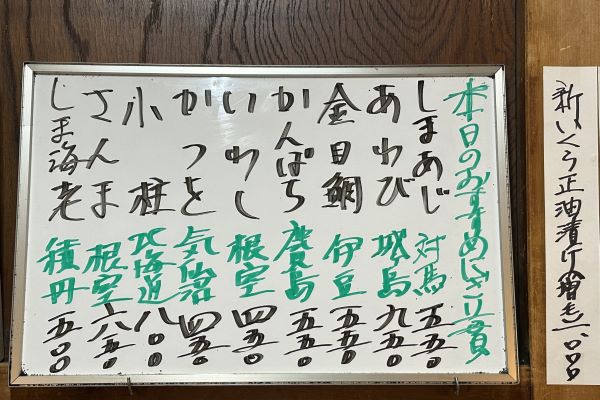 新いくら正油漬け増毛一、〇〇〇
本日のおすすめにぎり壱貫
しまあじ 対馬 五五〇
あわび 城ヶ島 九五〇
金目鯛 伊豆 五五〇
かんぱち 鹿児島 五五〇
いわし 根室 四五〇
かつを 気仙沼 四五〇
小柱 北海道 八〇〇
さんま 根室 六五〇
しま海老 積丹 五〇〇